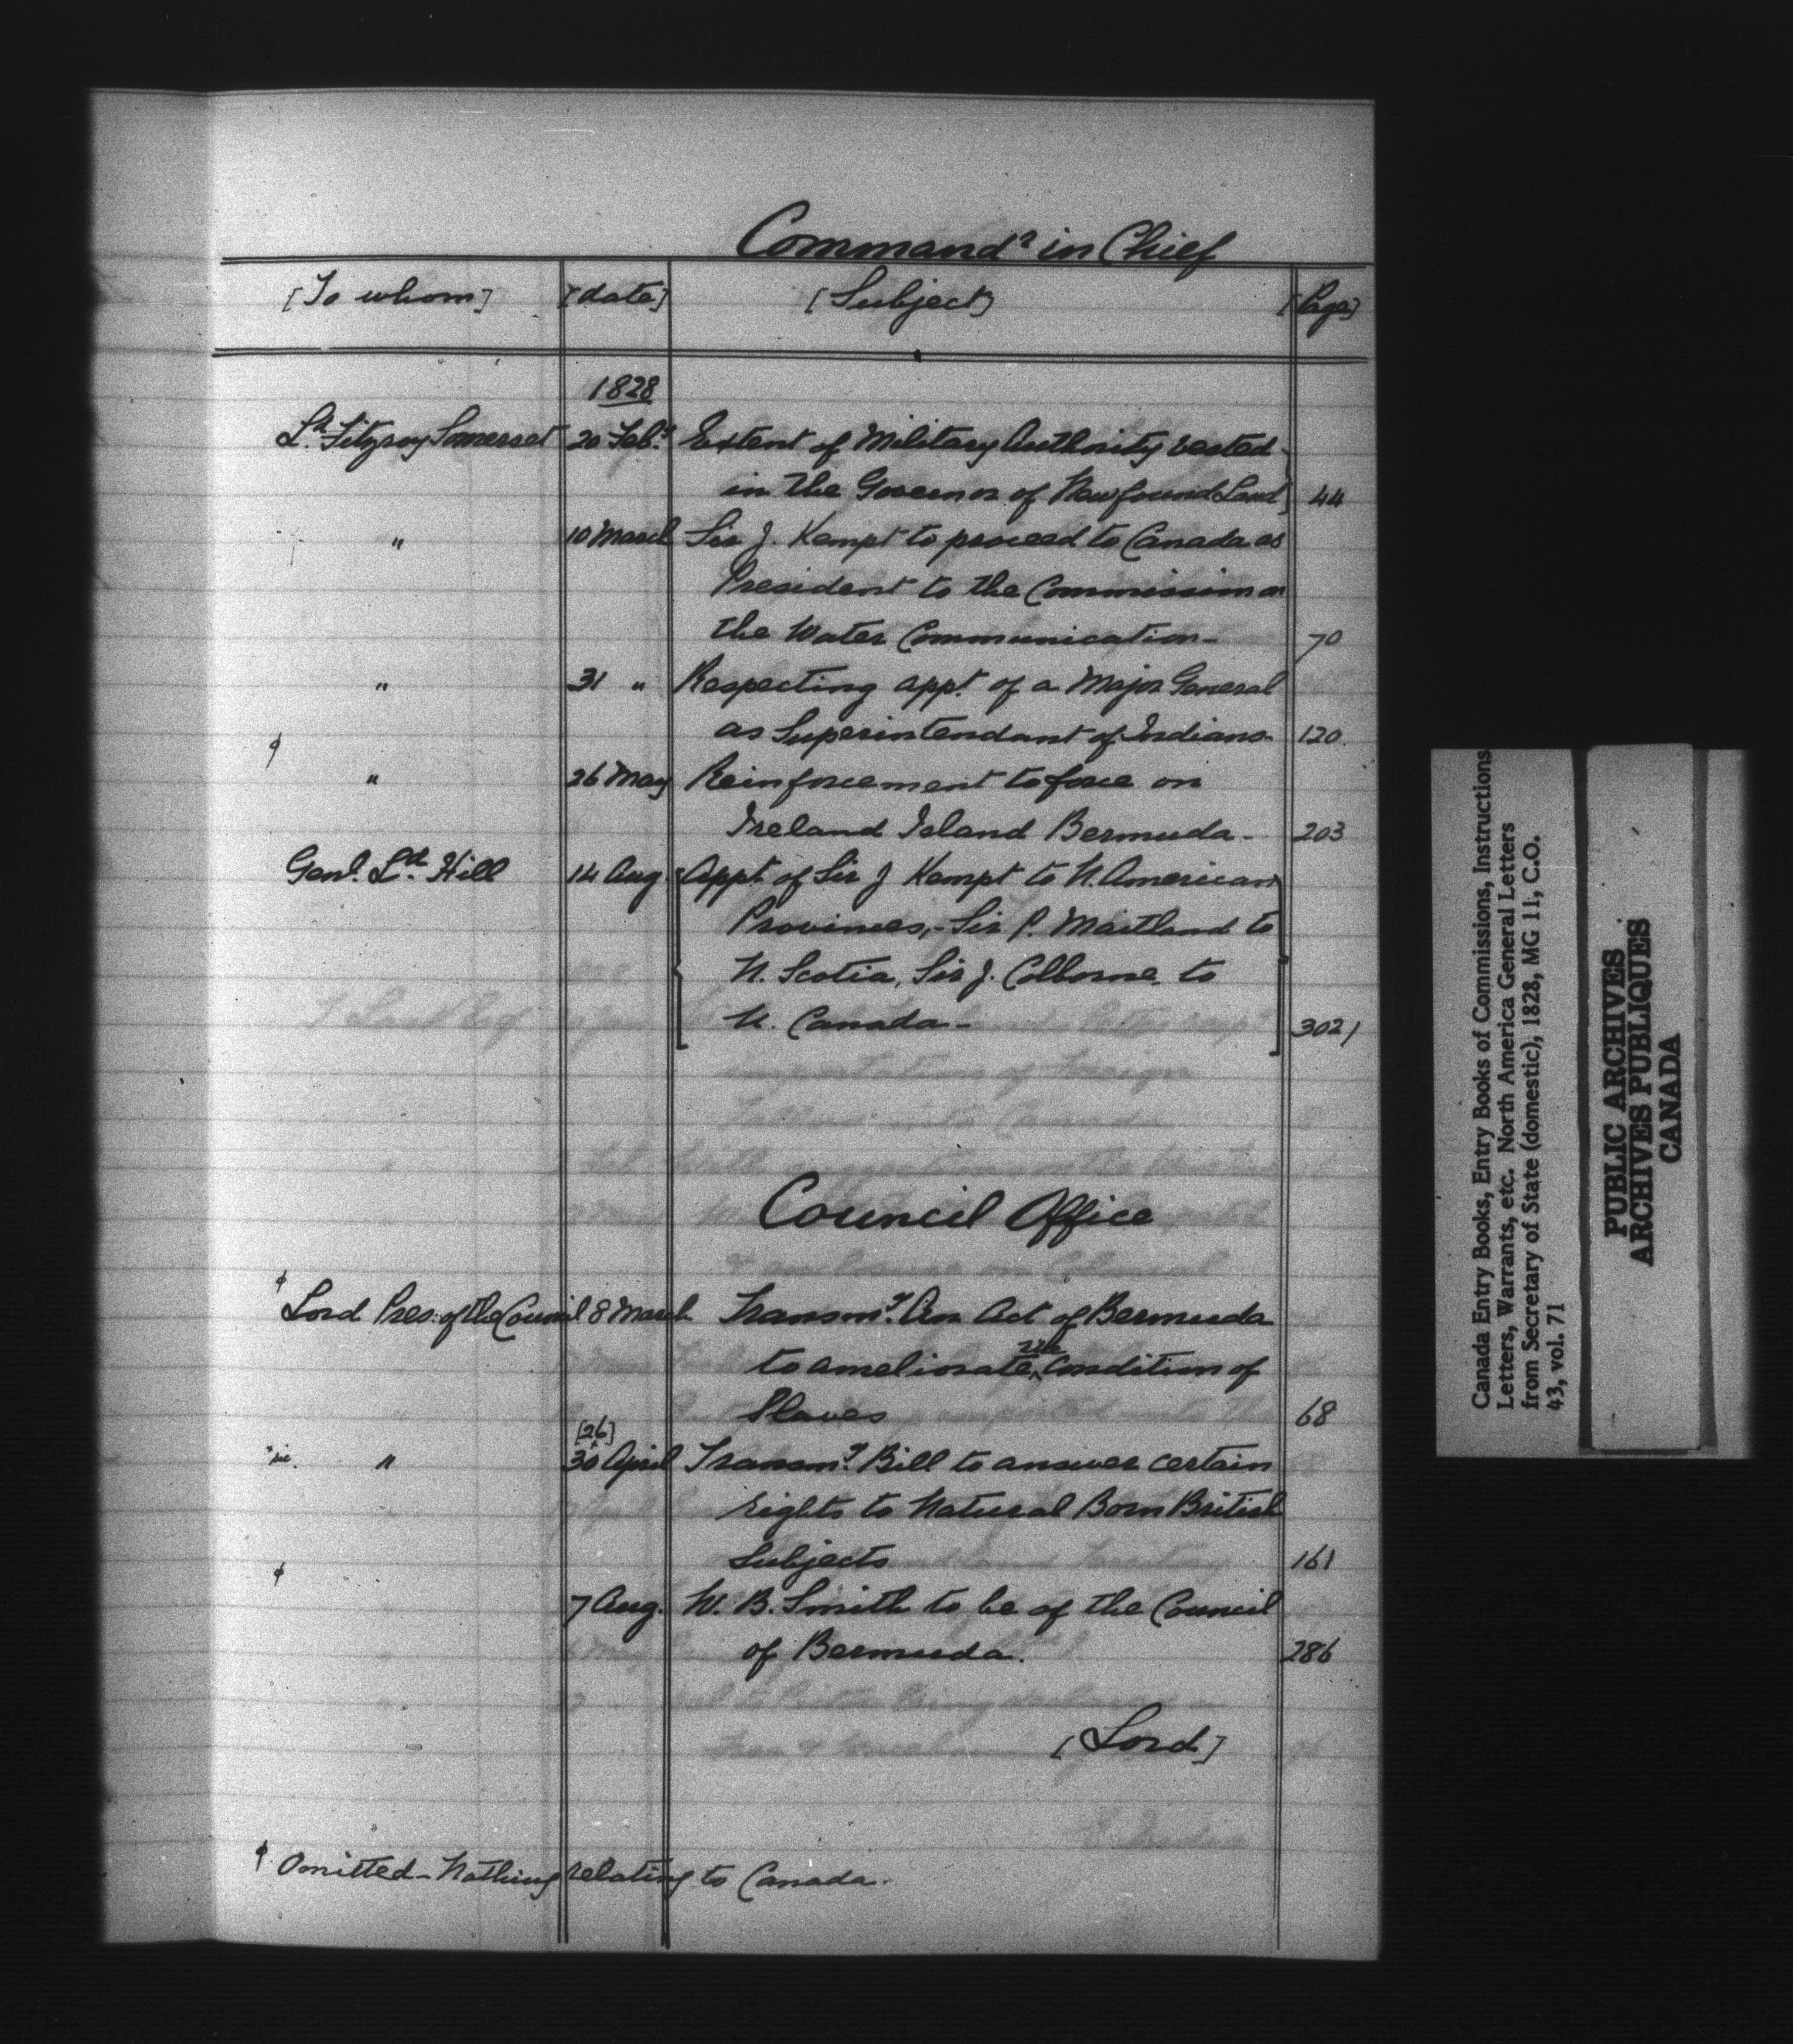 Commandr in Chief
[To whom] [date] [Subject] [Page]
1828
Ld. Fitzroy Somerset 20 Feby. Extent of Military Authority vested
in the Governor of Newfound Land 44
" 10 March Sir J. Kempt to proceed to Canada as
President to the Commission on
the Water Communication - 70
" 31 " Respecting appt. of a Major General
as Superintendant of Indians. 120.
ϕ
" 26 May Reinforcement to force on
Ireland Island Bermuda - 203
Genl. Ld. Hill 14 Aug. Appt. of Sir J Kempt to N. American
Provinces, - Sir P. Maitland to
N. Scotia, Sir J. Colborne to
U. Canada - 302
Council Office
ϕ
Lord Pres: of the Council 8 March Transmg. An Act of Bermuda
to ameliorate ^the Condition of
Slaves 68
[26]
" 30 April Transmg. Bill to answer certain
rights to Natural Born British
Subjects 161
ϕ
7 Aug. W. B. Smith to be of the Council
of Bermuda. 286
[Lord]
ϕ Omitted - Nothing relating to Canada.
Canada Entry Books, Entry Books of Commissions, Instructions
Letters, Warrants, etc. North America General Letters
from Secretary of State (domestic), 1828, MG 11, C.O.
43, vol. 71
PUBLIC ARCHIVES
ARCHIVES PUBLIQUES
CANADA